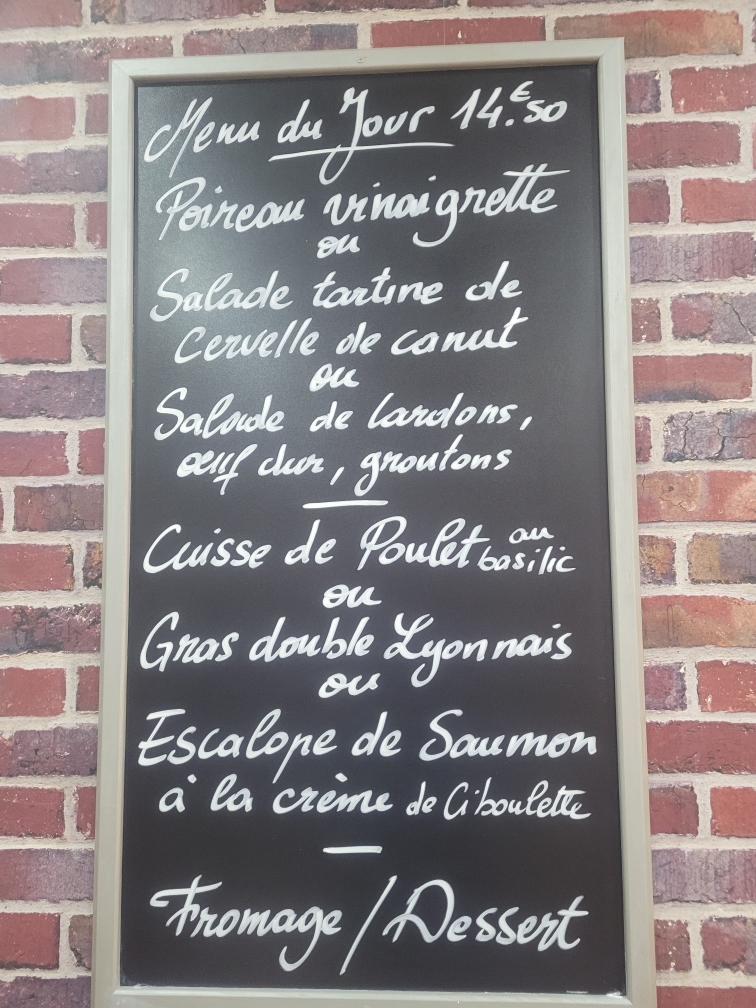 Menu du Jour 14.€50
Poireau vinaigrette
ou
Salade tartine de
Cervelle de canut
ou
Salade de lardons,
œuf dur, groutons
Cuisse de Poulet au basilic
ou
Gras double Lyonnais
ou
Escalope de Saumon
à la crème de Ciboulette
Fromage / Dessert